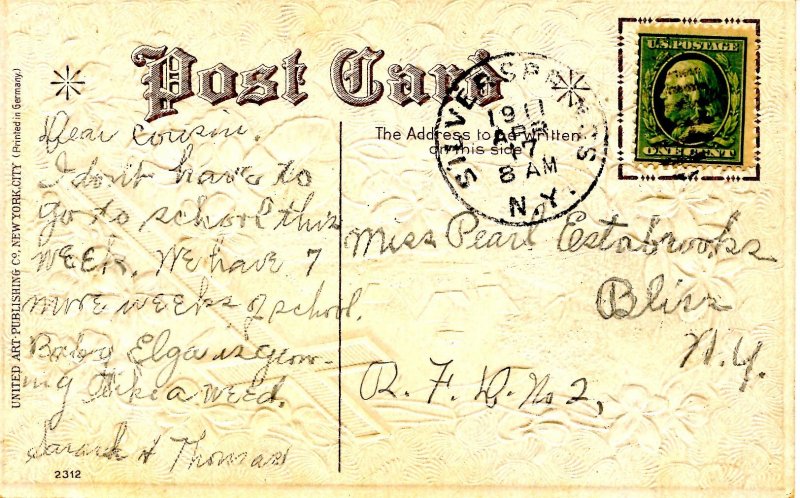 Post Card
UNITED ART PUBLISHING Co. NEW YORK.CITY (Printed in Germany.)
The Address to be written
on this side
SILVER SPRINGS
1911
APR
17
8 AM
N.Y.
U.S. POSTAGE
ONE CENT
Dear cousin.
I don't have to
go to school this
week. We have 7
more weeks of school.
Baby Elga is grow-
ing like a weed.
Sarah H Thomas
Miss Pearl Estabrooks
Bliss
N.Y.
R. F. D. No 2,
2312